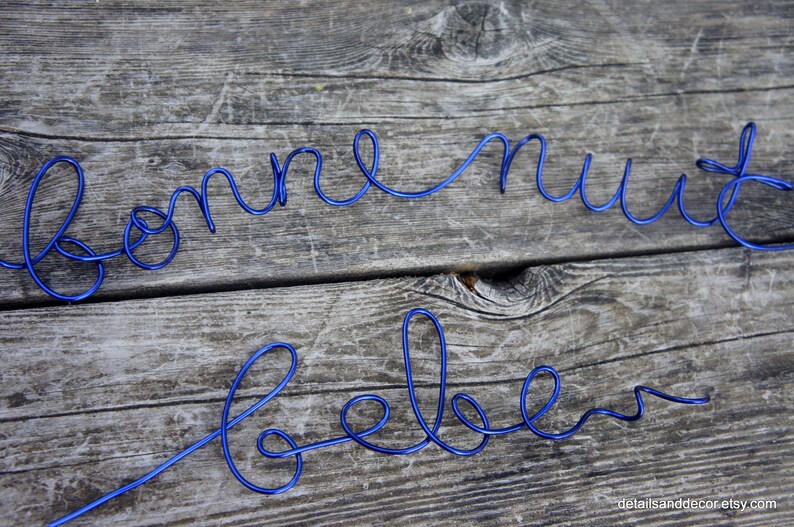 bonne nuit
bebe
detailsanddecor.etsy.com